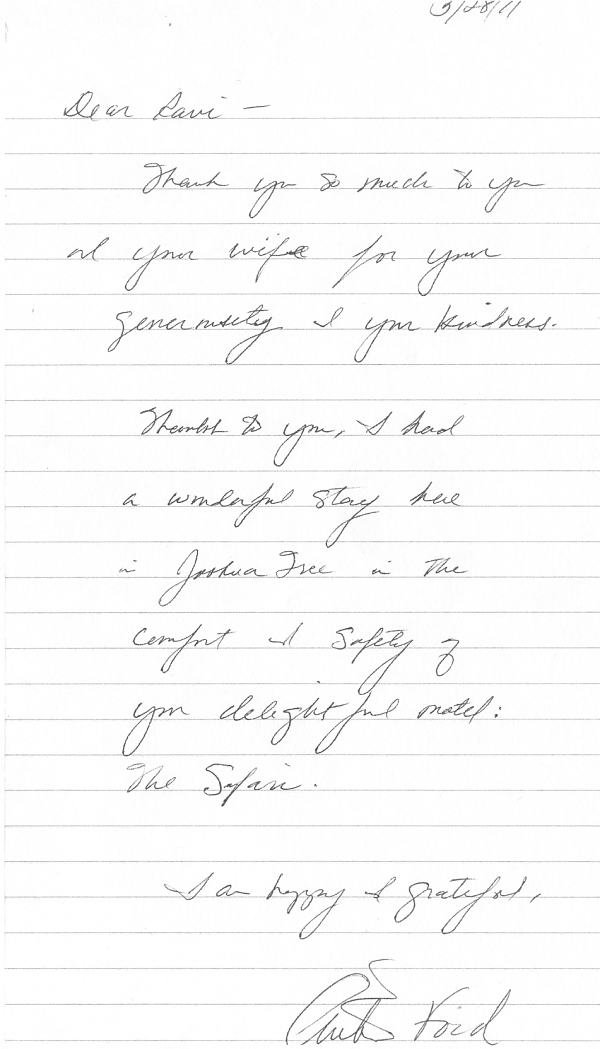 3/28/11
Dear Ravi —
Thank you so much to you
and your wife for your
generousity & your kindness.
Thanks to you, I had
a wonderful stay here
in Joshua Tree in the
comfort and safety of
your delightful motel:
The Safari.
I am happy & grateful,